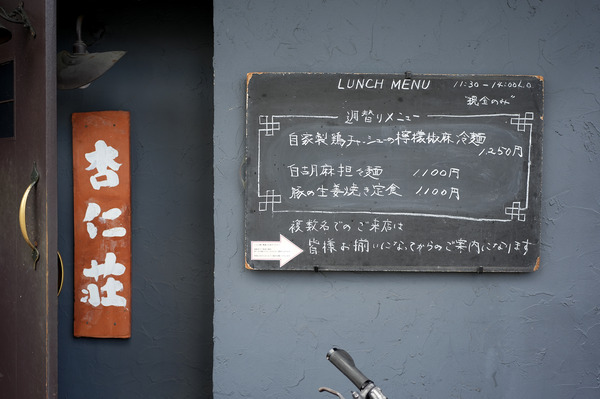 杏仁荘
LUNCH MENU
11:30-14:00L.O.
"現金のみ"
週替りメニュー
自家製鶏チャーシューの檸檬板麻冷麺
1,250円
白胡麻担々麺 1100円
豚の生姜焼き定食 1100円
複数名でのご来店は
皆様お揃いになってからのご案内になります